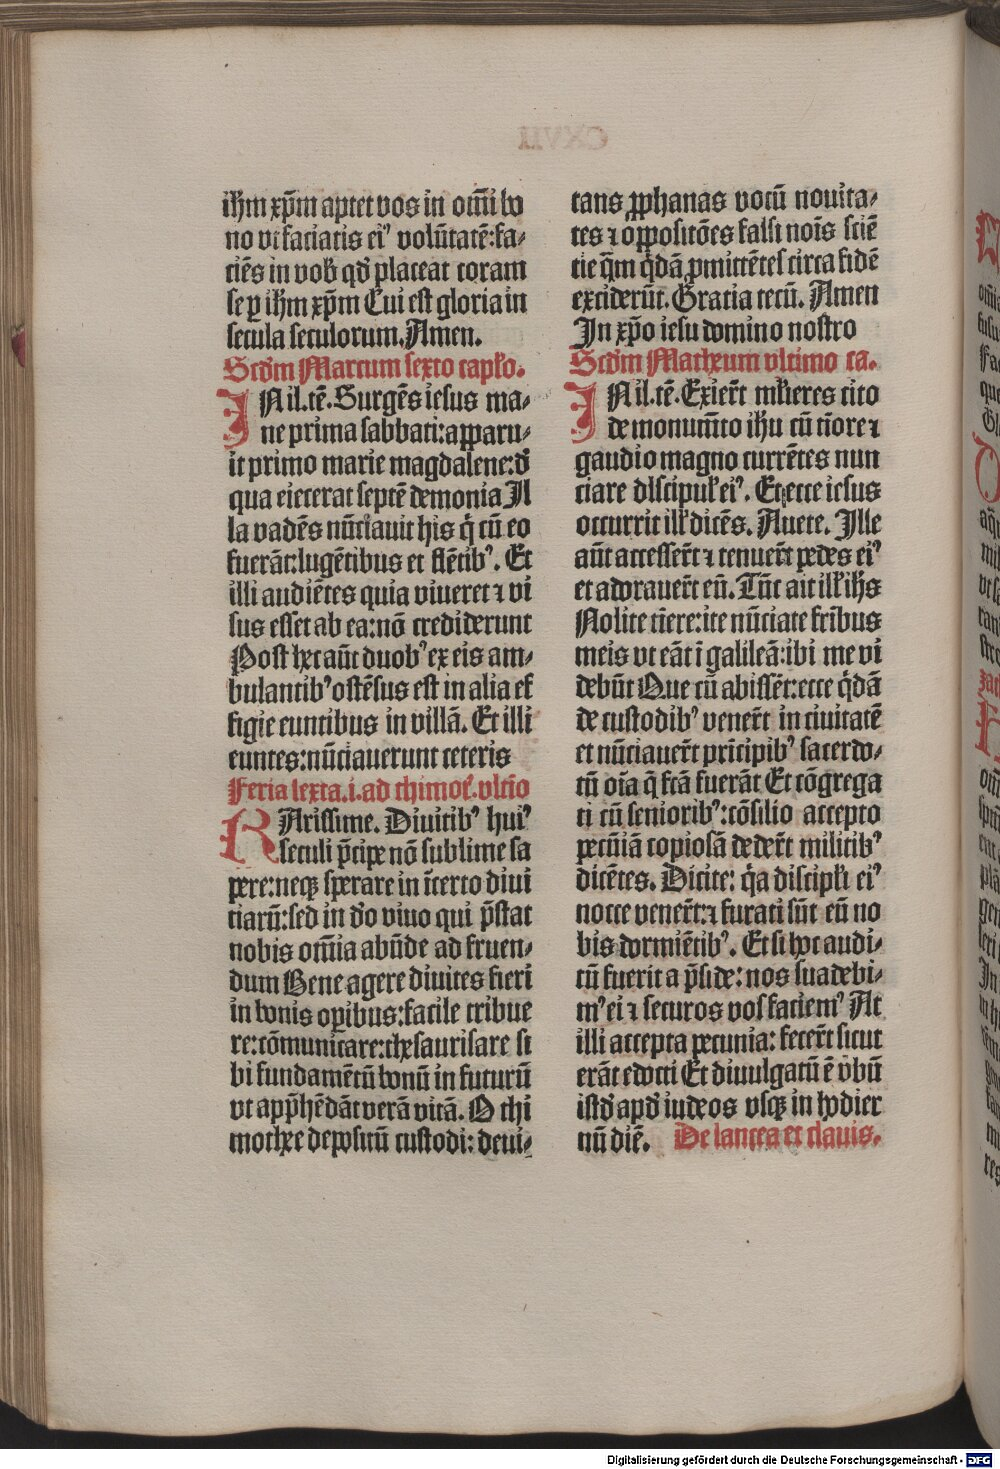 ihm xp̄m aptet vos in om̄i bo
no vt faciatis eiꝰ volūtatē: fa⸗
ciēs in vob̵ qd̵ placeat coram
se ꝑ ihm xp̄m Cui est gloria in
secula seculorum. Amen.
Scd̵m Marcum sexto capl̵o.
IN il. tē. Surgēs iesus ma⸗
ne prima sabbati: apparu⸗
it primo marie magdalene: d̵
qua eiecerat septē demonia Il
la vadēs nūciauit his q̄ cū eo
fuerāt: lugētibus et flētibꝰ. Et
illi audiētes quia viueret ⁊ vi
sus esset ab ea: nō crediderunt
Post hec aūt duobꝰ ex eis am⸗
bulantibꝰ ostēsus est in alia ef
figie euntibus in villā. Et illi
euntes: nūciauerunt ceteris
Feria sexta. i. ad thimot̄. vltīo
KArissime. Diuitibꝰ huiꝰ
seculi p̄cipe nō sublime sa
pere: neqꝫ sperare in īcerto diui
tiarū: sed in d̵o viuo qui p̄stat
nobis om̄ia abūde ad fruen⸗
dum Bene agere diuites fieri
in bonis oꝑibus: facile tribue
re: cōmunicare: thesaurisare si
bi fundamētū bonū in futurū
vt app̄hēdāt verā vitā. O thi
mothee depositū custodi: deui⸗
tans ꝓphanas vocū nouita⸗
tes ⁊ oppositōes falsi noīs sciē
tie q̄m q̇dā ꝓmittētes circa fidē
exciderūt. Gratia tecū. Amen
In xp̄o iesu domino nostro
Scd̵m Matheum vltimo ca.
IN il. tē. Exier̄t ml̵ieres cito
de monum̄to ihu cū tīore ⁊
gaudio magno currētes nun
ciare discipul̵ eiꝰ. Et ecce iesus
occurrit ill̵ dicēs. Auete. Ille
aūt accesser̄t ⁊ tenuer̄t pedes eiꝰ
et adorauer̄t eū. Tūc ait ill̵ ih̄s
Nolite tīere: ite nūciate fr̄ibus
meis vt eāt ī galileā: ibi me vi
debūt Que cū abissēt: ecce q̇dā
de custodibꝰ vener̄t in ciuitatē
et nūciauer̄t prīcipibꝰ sacerdo⸗
tū oīa q̄ fc̄ā fuerāt Et cōgrega
ti cū senioribꝰ: cōsilio accepto
pecūiā copiosā deder̄t militibꝰ
dicētes. Dicite: q̇a discipl̵i eiꝰ
nocte vener̄t: ⁊ furati sūt eū no
bis dormiētibꝰ. Et si hoc audi⸗
tū fuerit a p̄side: nos suadebi⸗
mꝰ ei ⁊ securos vos faciemꝰ At
illi accepta pecunia: fecer̄t sicut
erāt edocti Et diuulgatū ē v̵bū
istd̵ apd̵ iudeos vsqꝫ in hodier
nū diē. De lancea et clauis.
Digitalisierung gefördert durch die Deutsche Forschungsgemeinschaft - DFG